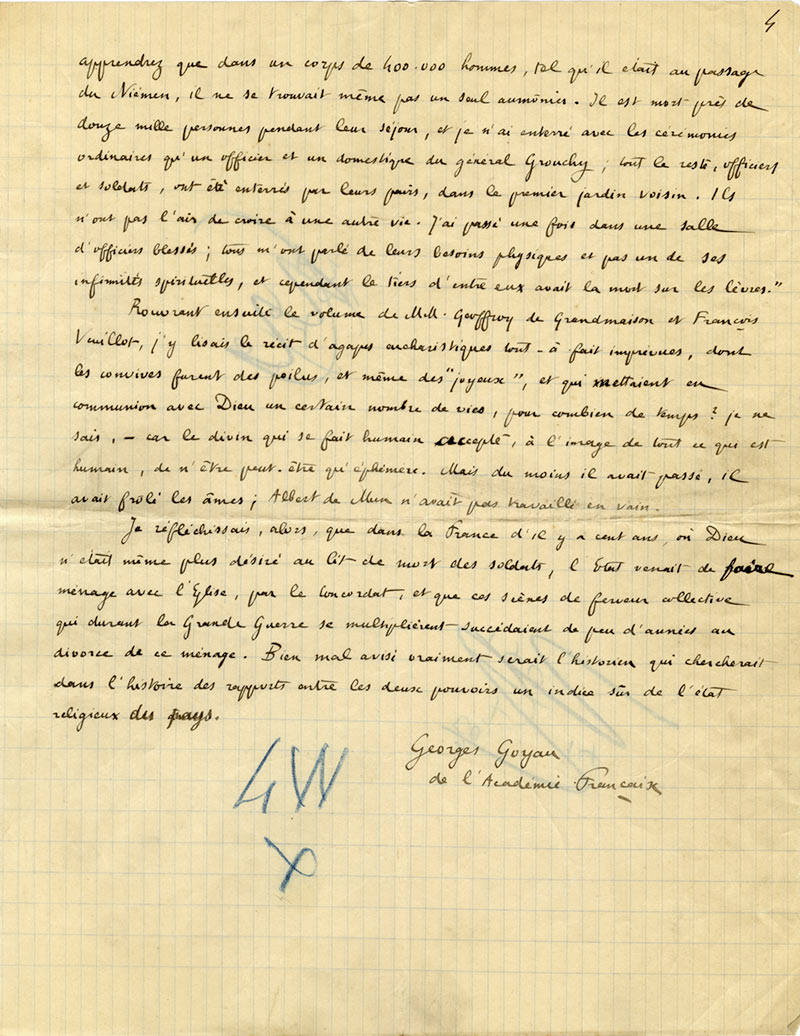 4
apprendrez que dans un corps de 400.000 hommes, tel qu'il était au passage
du Niémen, il ne se trouvait même pas un seul aumônier. Il est mort près de
douze mille personnes pendant leur séjour, et je n'ai enterré avec les cérémonies
ordinaires qu'un officier et un domestique du général Grouchy ; tout le reste, officiers
et soldats, ont été enterrés par leurs pairs, dans le premier jardin voisin. Ils
n'ont pas l'air de croire à une autre vie. J'ai passé une fois dans une salle
d'officiers blessés ; tous m'ont parlé de leurs besoins physiques et pas un de ses
infirmités spirituelles, et cependant le tiers d'entre eux avait la mort sur les lèvres."
Rouvrant ensuite le volume de M.M. Geoffroy de Grandmaison et François
Veuillot, j'y lisais le récit d'agapes eucharistiques tout-à fait imprévues, dont
les convives furent des poilus, et même des "joyeux", et qui mettaient en
communion avec Dieu un certain nombre de vies, pour combien de temps ? je ne
sais, – car le divin qui se fait humain accepte, à l'image de tout ce qui est
humain, de n'être peut-être qu'éphémère. Mais du moins il avait passé, il
avait frôlé les âmes ; Albert de Mun n'avait pas travaillé en vain.
Je réfléchissais, alors, que dans la France d'il y a cent ans, où Dieu
n'était même plus désiré au lit de mort des soldats, l'Etat venait de faire
ménage avec l'Eglise, par le Concordat, et que ces scènes de ferveur collective
qui durant la Grande Guerre se multiplièrent succédaient de peu d'années au
divorce de ce ménage. Bien mal avisé vraiment serait l'historien qui chercherait
dans l'histoire des rapports entre les deux pouvoirs un indice sûr de l'état
religieux des pays.
Georges Goyau
de l'Académie Française
4W
X